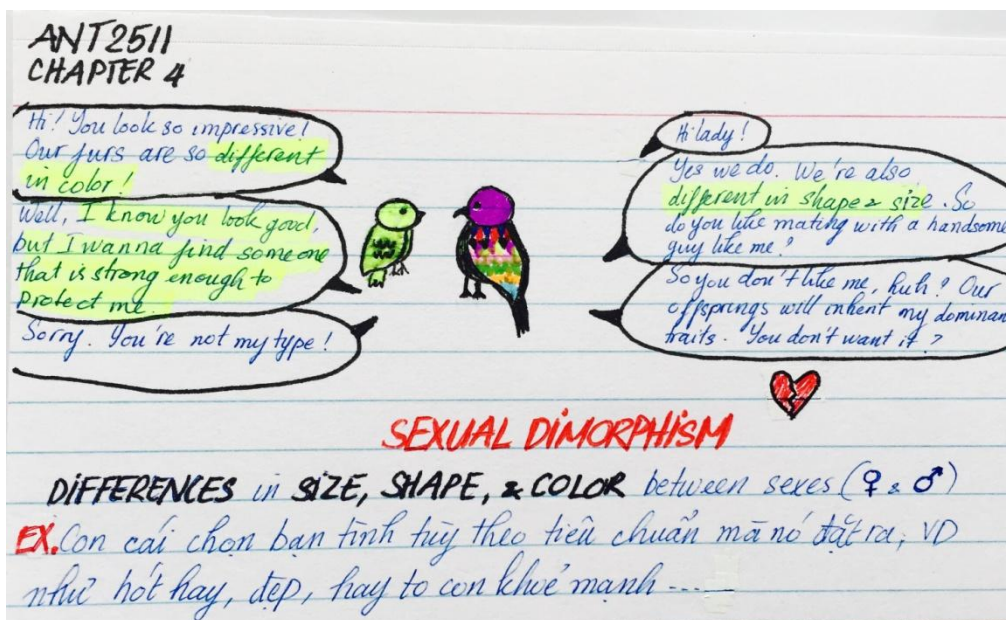 ANT2511
CHAPTER 4
Hi! You look so impressive!
Our furs are so different
in color!
Well, I know you look good,
but I wanna find someone
that is strong enough to
protect me.
Sorry. You're not my type!
Hi lady!
Yes we do. We're also
different in shape & size. So
do you like mating with a handsome
guy like me?
So you don't like me, huh? Our
offsprings will inherit my dominan
traits. You don't want it?
SEXUAL DIMORPHISM
DIFFERENCES in SIZE, SHAPE, & COLOR between sexes (♀ & ♂)
EX. Con cái chọn bạn tình tùy theo tiêu chuẩn mà nó đặt ra, VD
như hót hay, đẹp, hay to con khoẻ mạnh .....